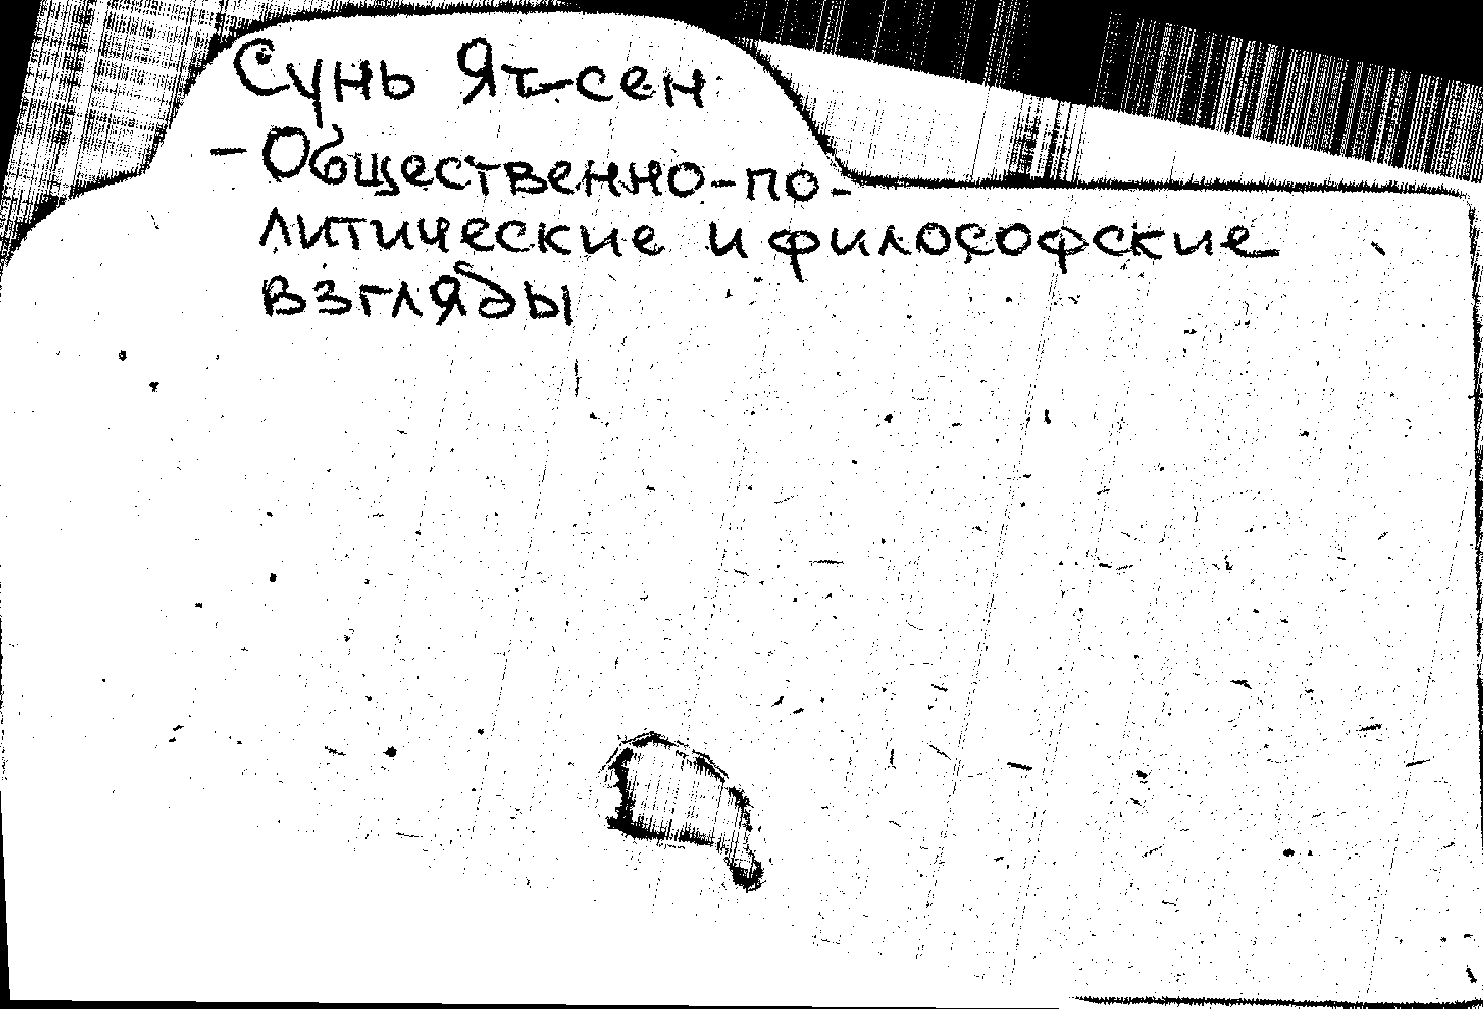 Сунь Ят-сен
- Общественно-по-
литические и философские
взгляды